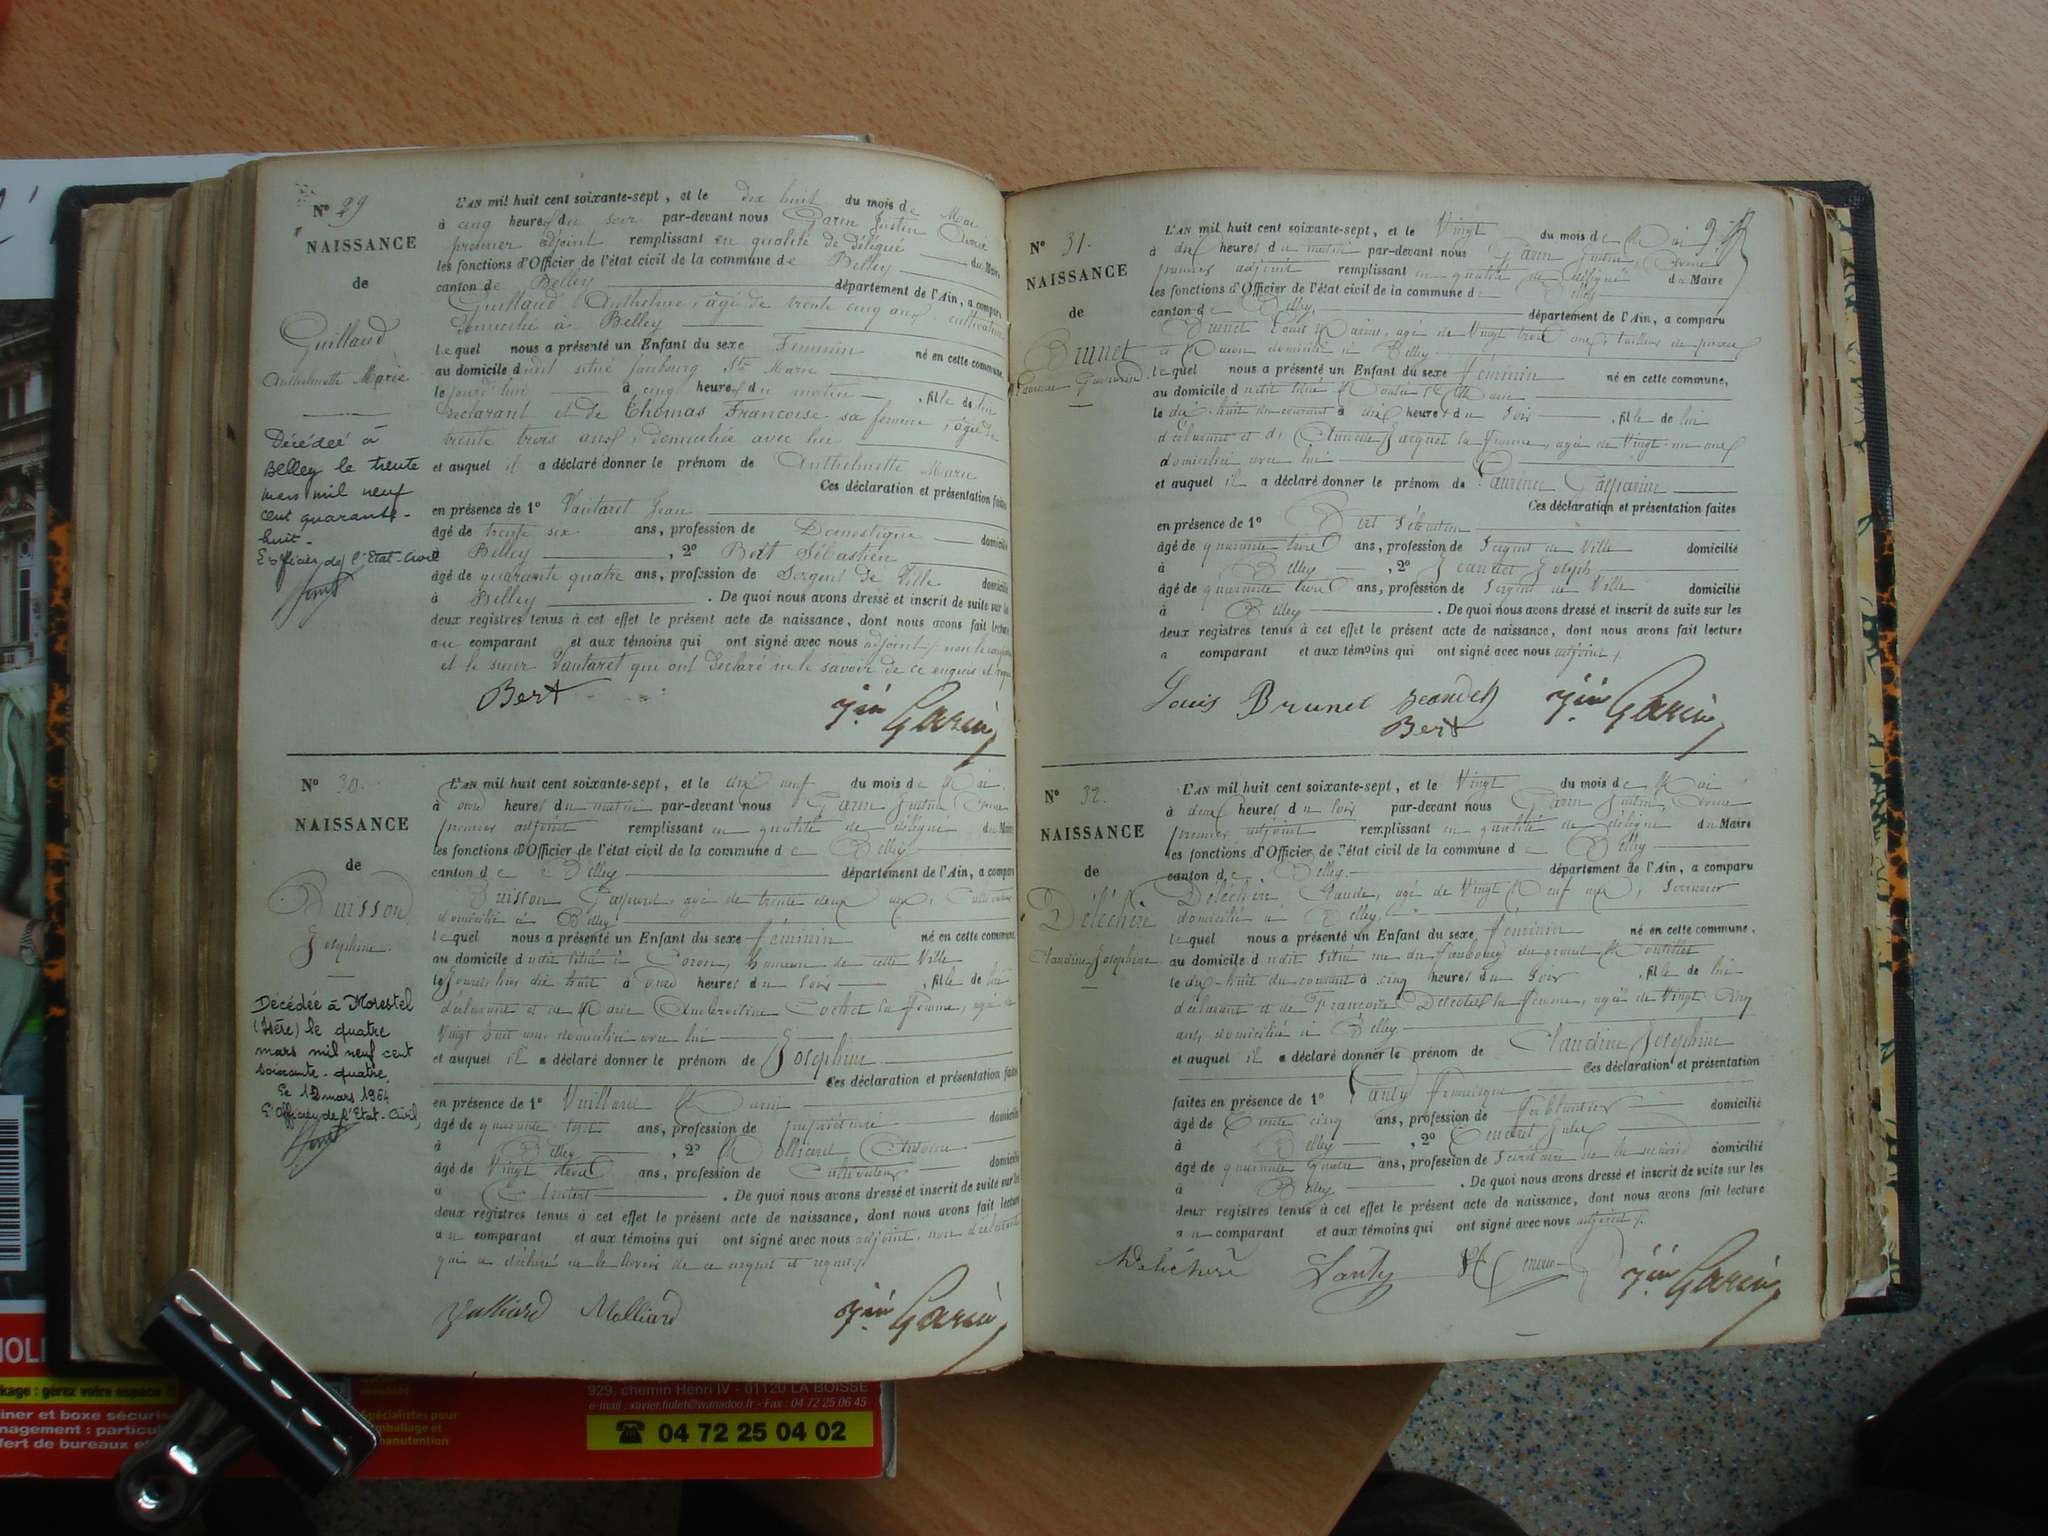 Nº 29
NAISSANCE
de
Guillaud
Anthelmette Marie
Décédée à
Belley le trente
mars mil neuf
cent quarante-
huit.
L'officier de l'Etat-Civil
L'AN mil huit cent soixante-sept, et le dix huit du mois de Mai
à cinq heures du soir par-devant nous Garin Justin
premier adjoint remplissant en qualité de délégué du Maire
les fonctions d'Officier de l'état civil de la commune de Belley
canton de Belley département de l'Ain, a comparu
Guillaud Anthelme, âgé de trente cinq ans, cultivateur
domicilié à Belley
lequel nous a présenté un Enfant du sexe Féminin né en cette commune,
au domicile dudit situé faubourg Ste Marie
le jourd'hui à cinq heures du matin, fille de lui
déclarant et de Thomas Françoise sa femme, âgée de
trente trois ans, domiciliée avec lui
et auquel il a déclaré donner le prénom de Anthelmette Marie
Ces déclaration et présentation faites
en présence de 1º Vautaret Jean
âgé de trente six ans, profession de Domestique domicilié
à Belley, 2º Bert Sébastien
âgé de quarante quatre ans, profession de Sergent de Ville domicilié
à Belley. De quoi nous avons dressé et inscrit de suite sur les
deux registres tenus à cet effet le présent acte de naissance, dont nous avons fait lecture
au comparant et aux témoins qui ont signé avec nous adjoint, non le comparant
et le sieur Vautaret qui ont déclaré ne le savoir de ce enquis et requis
Bert Jin Garin
Nº 30.
NAISSANCE
de
Buisson
Josephine.
Décédée à Morestel
(Isère) le quatre
mars mil neuf cent
soixante-quatre,
Le 12 mars 1964
L'Officier de l'Etat-Civil,
L'AN mil huit cent soixante-sept, et le dix neuf du mois de Mai
à onze heures du matin par-devant nous Garin Justin
premier adjoint remplissant en qualité de délégué du Maire
les fonctions d'Officier de l'état civil de la commune de Belley
canton de Belley département de l'Ain, a comparu
Buisson Gaspard, âgé de trente deux ans, Cultivateur
domicilié à Belley
lequel nous a présenté un Enfant du sexe féminin né en cette commune,
au domicile dudit situé à Coron, hameau de cette Ville
le Jourd'hier dix huit à onze heures du soir, fille de lui
déclarant et de Marie Cochet sa femme, âgée de
Vingt huit ans domiciliée avec lui
et auquel il a déclaré donner le prénom de Josephine
Ces déclaration et présentation faites
en présence de 1º Vuilliard
âgé de quarante ans, profession de propriétaire domicilié
à Belley, 2º Molliard Antoine
âgé de Vingt deux ans, profession de Cultivateur domicilié
à. De quoi nous avons dressé et inscrit de suite sur les
deux registres tenus à cet effet le présent acte de naissance, dont nous avons fait lecture
au comparant et aux témoins qui ont signé avec nous adjoint, non le déclarant
qui a déclaré ne le savoir de ce enquis et requis
Vulliard Molliard Jin Garin
Nº 31.
NAISSANCE
de
Brunet
Laurence Gasparine
L'AN mil huit cent soixante-sept, et le Vingt du mois de Mai
à dix heures du matin par-devant nous Garin Justin
premier adjoint remplissant en qualité de délégué du Maire
les fonctions d'Officier de l'état civil de la commune de Belley
canton de Belley département de l'Ain, a comparu
Brunet Louis Marius, âgé de Vingt trois ans, tailleur de pierres
domicilié à Belley
lequel nous a présenté un Enfant du sexe féminin né en cette commune,
au domicile dudit situé
le dix-huit du courant à dix heures du soir, fille de lui
déclarant et de Jacquet sa femme, âgée de Vingt un ans
domiciliée avec lui
et auquel il a déclaré donner le prénom de Laurence Gasparine
Ces déclaration et présentation faites
en présence de 1º Bert Sébastien
âgé de quarante trois ans, profession de Sergent de Ville domicilié
à Belley, 2º Jeandet Joseph
âgé de quarante trois ans, profession de Sergent de Ville domicilié
à Belley. De quoi nous avons dressé et inscrit de suite sur les
deux registres tenus à cet effet le présent acte de naissance, dont nous avons fait lecture
a comparant et aux témoins qui ont signé avec nous adjoint.
Louis Brunet Jeandet Jin Garin
Bert
Nº 32.
NAISSANCE
de
Déléchère
Claudine Josephine
L'AN mil huit cent soixante-sept, et le Vingt du mois de Mai
à deux heures du soir par-devant nous Garin Justin
premier adjoint remplissant en qualité de délégué du Maire
les fonctions d'Officier de l'état civil de la commune de Belley
canton de Belley. département de l'Ain, a comparu
Déléchère Claude, âgé de Vingt Neuf ans, Serrurier
domicilié à Belley,
lequel nous a présenté un Enfant du sexe féminin né en cette commune,
au domicile dudit situé rue du faubourg du grand
le dix huit du courant à cinq heures du soir, fille de lui
déclarant et de Françoise sa femme, âgée de Vingt Cinq
ans, domiciliée à Belley
et auquel il a déclaré donner le prénom de Claudine Josephine
Ces déclaration et présentation
faites en présence de 1º Lanty
âgé de Trente cinq ans, profession de Ferblantier domicilié
à Belley, 2º Jules
âgé de quarante quatre ans, profession de Secrétaire de la mairie domicilié
à Belley. De quoi nous avons dressé et inscrit de suite sur les
deux registres tenus à cet effet le présent acte de naissance, dont nous avons fait lecture
au comparant et aux témoins qui ont signé avec nous adjoint.
Deléchère Lanty Jin Garin
929, chemin Henri IV - 01120 LA BOISSE
e-mail : xavier.fiolet@wanadoo.fr - Fax : 04 72 25 06 45
☎ 04 72 25 04 02
kage : gérez votre espace !!
iner et boxe sécuris
nagement : particul
fert de bureaux et
spécialistes pour
emballage et
manutention